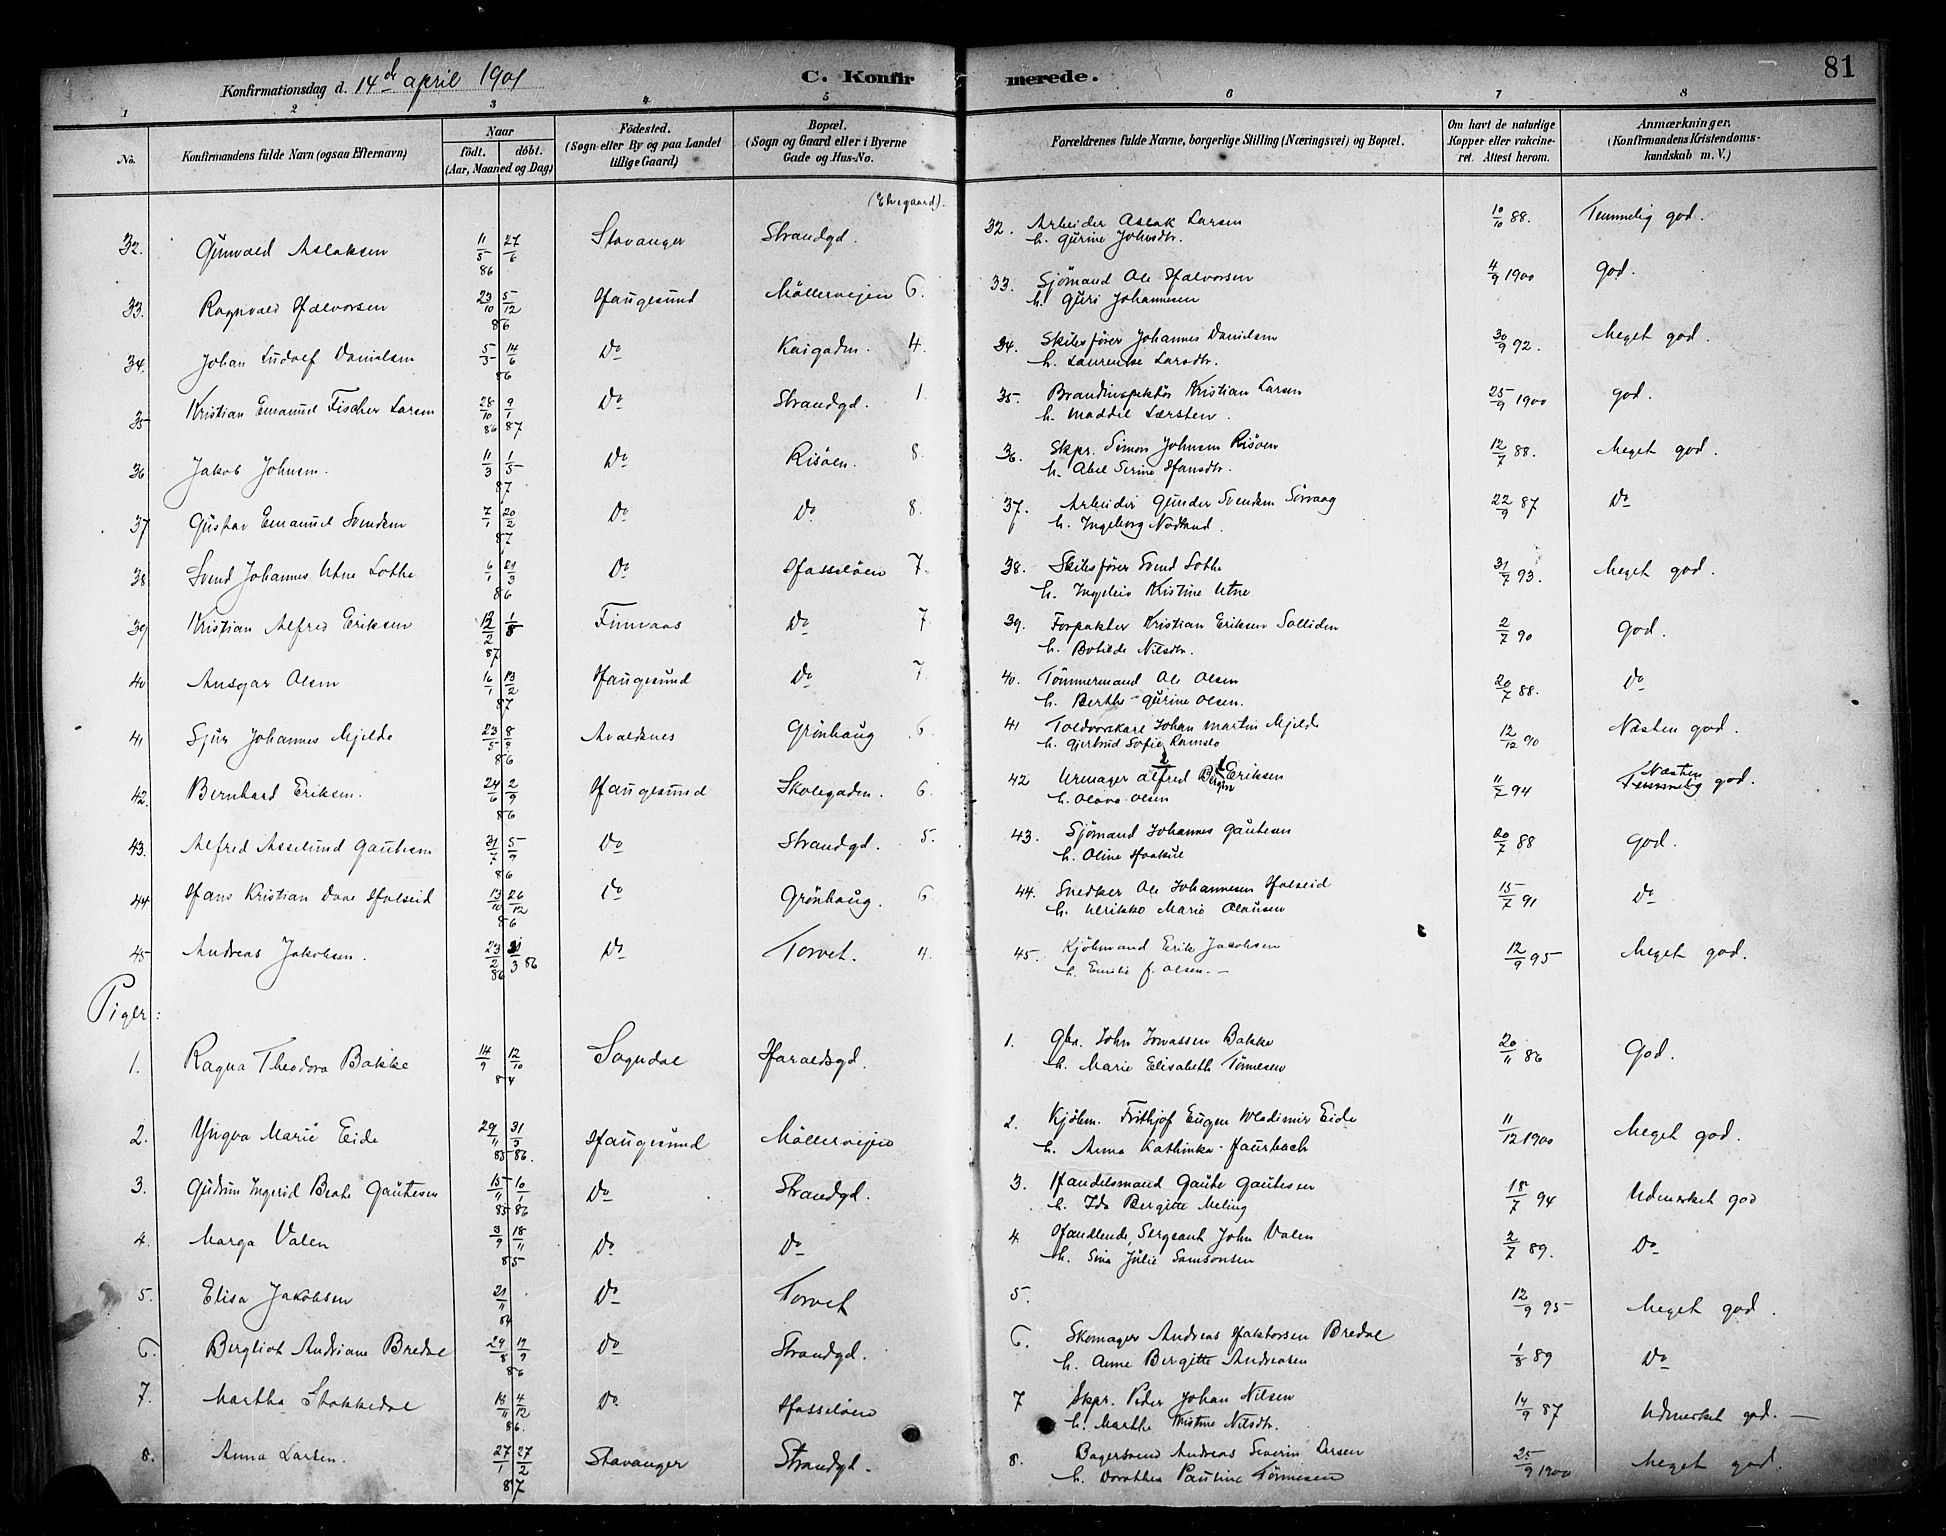 Konfirmationsdag d. 14de april 1901
C. Konfirmerede.
81
1 2 3 4 5 6 7 8
No.
Konfirmandens fulde Navn (ogsaa Efternavn)
Naar
født. døbt.
(Aar, Maaned og Dag)
Fødested.
(Sogn eller By og paa Landet
tillige Gaard)
Bopæl.
(Sogn og Gaard eller i Byerne
Gade og Hus-No.
Forældrenes fulde Navne, borgerlige Stilling (Næringsvei) og Bopæl.
Om havt de naturlige
Kopper eller vakcine-
ret. Attest herom.
Anmærkninger.
(Konfirmandens Kristendoms-
kundskab m. V.)
32. Gunvald Aslaksen 11/5 86 27/6 Stavanger Strandgd. 32. Arbeider Aslak Larsen 10/10 88. Temmelig god.
h. Gurine Johnsdtr.
33. Ragnvald Halvorsen 23/10 5/12 86 Haugesund Møllerveien 6. 33. Sjømand Ole Halvorsen 4/9 1900 god.
h. Guri Johannesen
34. Johan Ludolf Danielsen 5/3 14/6 86 Do Kaigaden. 4. 34. Skibsfører Johannes Danielsen 30/9 92. Meget god.
h. Laurentse Larsdtr.
35 Kristian Emanuel Fischer Larsen 28/10 86 9/1 87 Do Strandgd. 1. 35. Brandinspektør Kristian Larsen 25/9 1900 god.
h. Maddil Larsten.
36 Jakob Johnsen. 11/3 1/5 87 Do Risøen. 8. 36. Skpr. Simon Johnsen Risøen 12/7 88. Meget god.
h. Abel Serine Hansdtr.
37 Gustav Emanuel Svendsen 7/1 20/2 87 Do Do 8. 37. Arbeider Gunder Svendsen Sørvaag 22/9 87 Do
h. Ingeborg Nødland.
38 Svend Johannes Utne Lothe 6/1 21/3 86 Do Hasseløen 7. 38. Skibsfører Svend Lothe 31/7 93. Meget god.
h. Ingeleiv Kristine Utne
39 Kristian Alfred Eriksen 12/2 1/8 87 Finnaas Do 7 39. Forpakter Kristian Eriksen Solliden 2/7 90 god.
h. Botilde Nilsdtr.
40 Ansgar Olsen 16/1 13/2 87 Haugesund Do 7. 40. Tømmermand Ole Olsen 20/7 88. Do
h. Berthe Gurine Olsen.
41 Sjur Johannes Mjelde 23/5 8/8 86 Avaldsnes Grønhaug 6. 41 Toldopskarl Johan Martin Mjelde 12/12 90 Næsten god.
h. Gjertrud Sofie Ramslo
42. Bernhard Eriksen. 24/6 2/9 86 Haugesund Skolegaden. 6. 42 Urmager Alfred Eriksen 11/7 94 Næsten god.
h. Olava Olsen
43. Alfred Asselund Gautesen 31/7 5/9 86 Do Strandgd. 5. 43. Sjømand Johannes Gautesen 20/7 88 god.
h. Oline Haakul
44 Hans Kristian Daae Halseid 13/10 26/12 86 Do Grønhaug. 6 44. Snedker Ole Johannesen Halseid 15/7 91 Do
h. Ulrikke Marie Olausen
45 Andreas Jakobsen. 23/2 86 21/3 86 Do Torvet. 4. 45. Kjøbmand Erik Jacobsen 12/9 95 Meget god.
h. Emilie f. Olsen.
Piger:
1. Ragna Theodora Bakke 14/9 12/10 84 Sogndal Haraldsgd. 1. Gbr. John Jonassen Bakke 20/11 86 God.
h. Marie Elisabeth Tønnesen
2. Yngva Marie Eide 29/11 85 31/3 86. Haugesund Møllerveien 2. Kjøbm. Frithjof Eugen Wladimir Eide 11/12 1900 Meget god.
h. Anna Kathinka Haurbach
3. Gudrun Ingerid Beate Gautesen 15/11 85 10/1 86 Do Strandgd. 3. Handelsmand Gaute Gautesen 18/7 94 Udmerket god
h. Ida Bergitte Meling
4. Marga Valen 3/9 18/11 85 Do Do 4. Handlende, Sergeant John Valen 2/7 89. Do
h. Sina Julie Samsonsen
5. Elisa Jakobsen 21/11 84 Do Torvet 5. 12/9 95 Meget god.
6. Bergliot Andriane Bredal 29/8 19/9 86 Do Strandgd. 6. Skomager Andreas Jakobsen Bredal 1/8 89 Do
h. Anne Bergitte Andreasen
7. Martha Stokkedal 13/11 4/12 86. Do Hasseløen 7 Skpr. Peder Johan Nilsen 14/9 87 Udmerket god.
h. Marthe Kristine Nilsdtr.
8. Anna Larsen. 27/1 27/2 87 Stavanger Strandgd. 8. Bagersvend Andreas Severin Larsen 25/9 1900 Meget god.
h. Dorothea Pauline Tønnesen